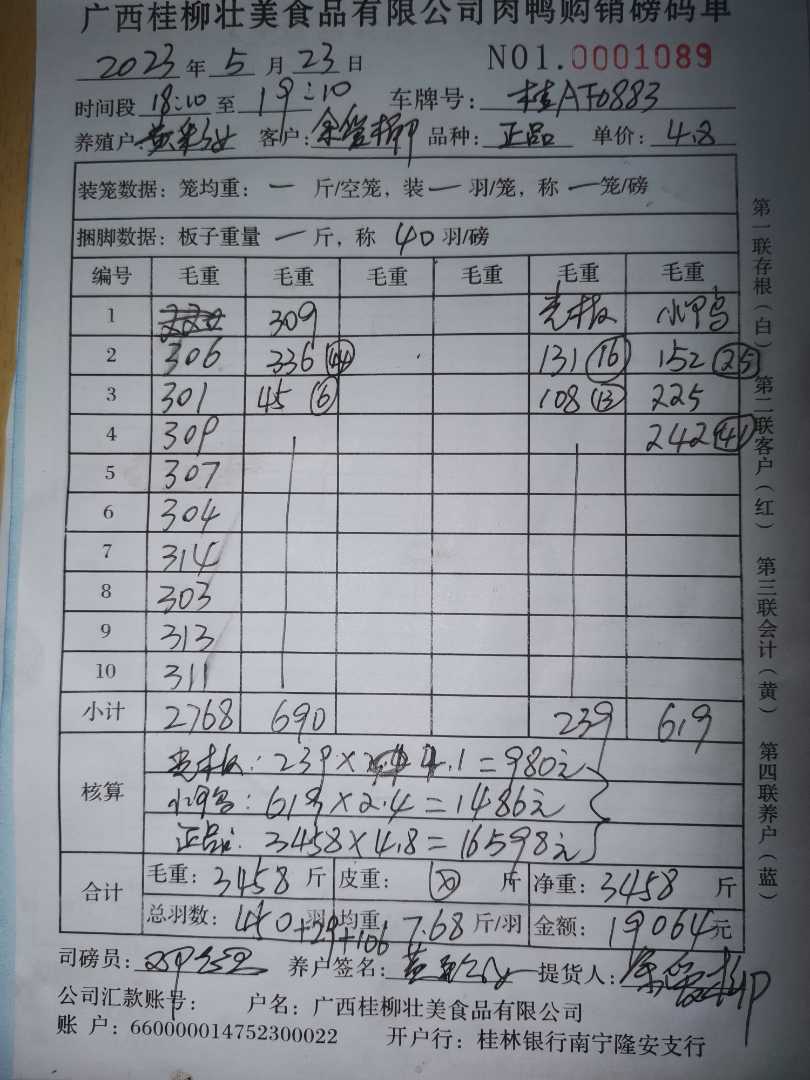 广西桂柳壮美食品有限公司肉鸭购销磅码单
2023 年 5 月 23 日 NO1.0001089
时间段 18:10 至 19:10 车牌号: 桂AF0883
养殖户 客户: 品种: 正品 单价: 4.8
装笼数据: 笼均重: 一 斤/空笼, 装 一 羽/笼, 称 一 笼/磅
捆脚数据: 板子重量 一 斤, 称 40 羽/磅
编号 毛重 毛重 毛重 毛重 毛重 毛重
1 309
2 306 336 (44) 131 (16) 152 (25)
3 301 45 (6) 108 (13) 225
4 309 242 (41)
5 307
6 304
7 314
8 303
9 313
10 311
小计 2768 690 239 619
核算
239 × 4.1 = 980元
619 × 2.4 = 1486元
正品: 3458 × 4.8 = 16598元
合计
毛重: 3458 斤 皮重: 斤 净重: 3458 斤
总羽数: 450 羽 +29 +106 均重: 7.68 斤/羽 金额: 19064 元
司磅员: 养户签名: 提货人:
公司汇款账号: 户名: 广西桂柳壮美食品有限公司
账 户: 660000014752300022 开户行: 桂林银行南宁隆安支行
第一联存根(白) 第二联客户(红) 第三联会计(黄) 第四联养户(蓝)